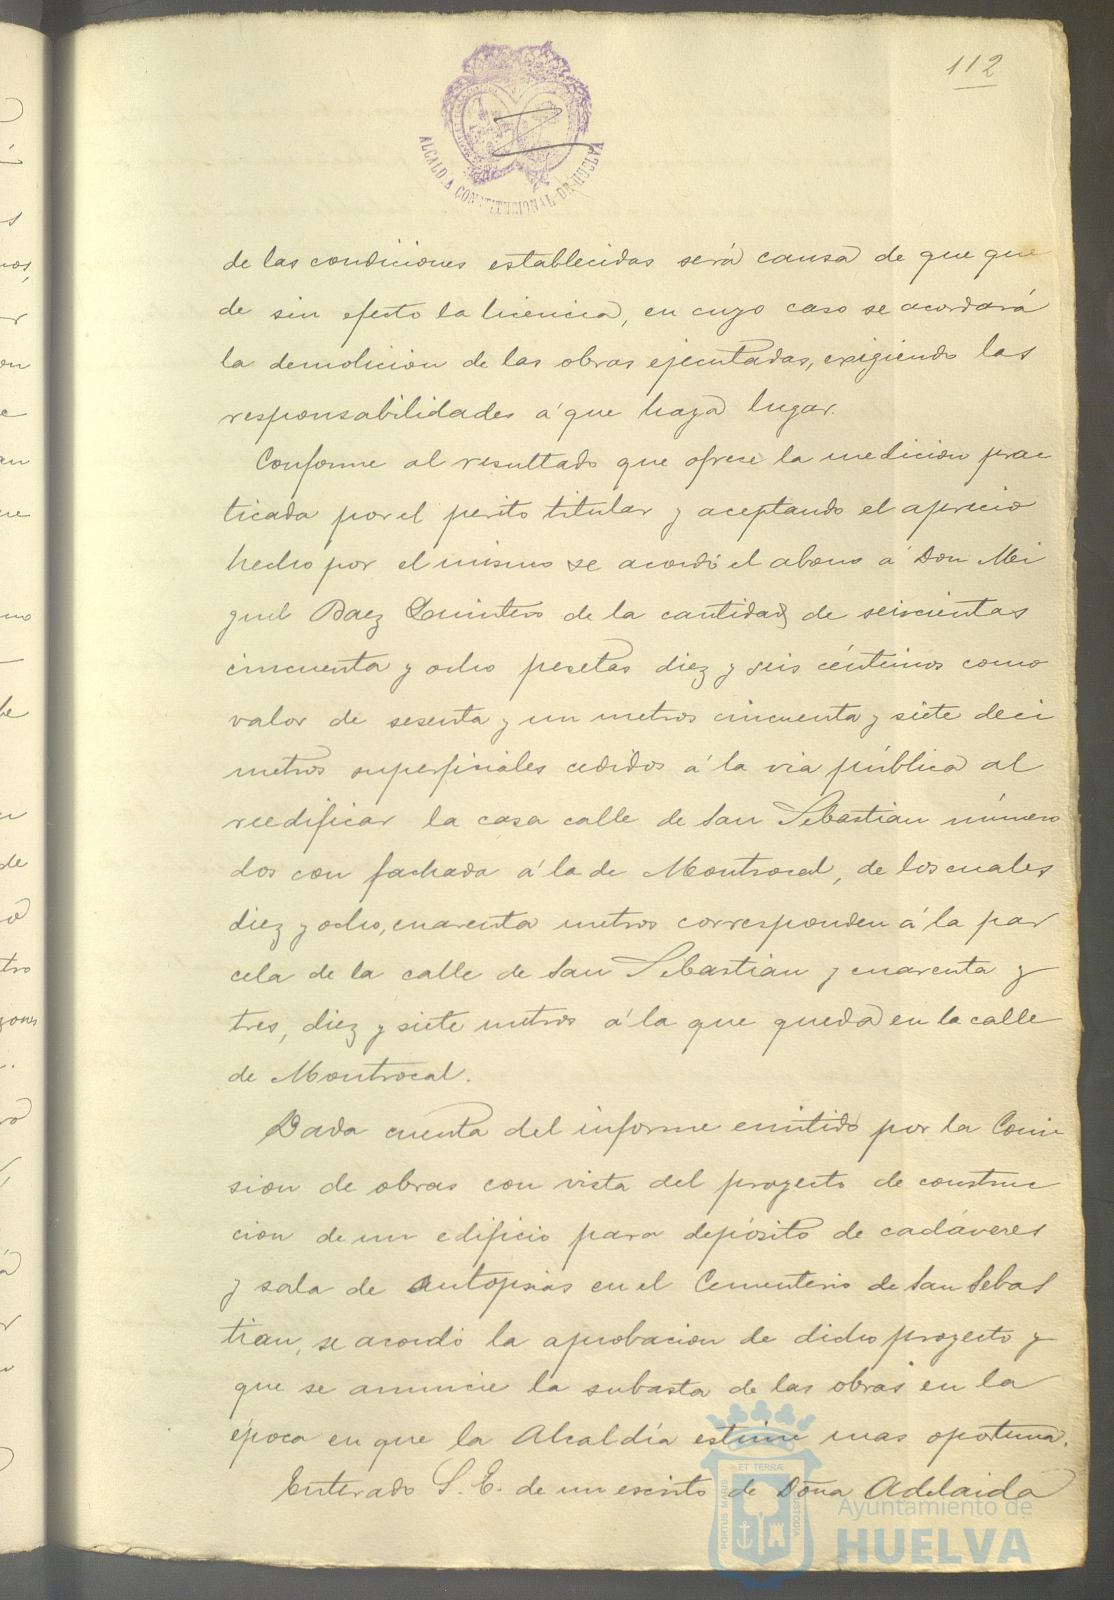 112
ALCALDIA CONSTITUCIONAL DE HUELVA
de las condiciones establecidas será causa de que que
de sin efecto la licencia, en cuyo caso se acordará
la demolicion de las obras ejecutadas, exigiendo las
responsabilidades á que haya lugar.
Conforme al resultado que ofrece la medicion prac
ticada por el perito titular y aceptando el aprecio
hecho por el mismo se acordó el abono á Don Mi
guel Baez Quintero de la cantidad de seiscientas
cincuenta y ocho pesetas diez y seis céntimos como
valor de sesenta y un metros cincuenta y siete deci
metros superficiales cedidos á la via pública al
reedificar la casa calle de San Sebastian número
dos con fachada á la de Montrocal, de los cuales
diez y ocho, cuarenta metros corresponden á la par
cela de la calle de San Sebastian y cuarenta y
tres, diez y siete metros á la que queda en la calle
de Montrocal.
Dada cuenta del informe emitido por la Comi
sion de obras con vista del proyecto de construc
cion de un edificio para depósito de cadáveres
y sala de autopsias en el Cementerio de San Sebas
tian, se acordó la aprobacion de dicho proyecto y
que se anuncie la subasta de las obras en la
época en que la Alcaldía estime mas oportuna.
Enterado S. E. de un escrito de Doña Adelaida
PORTUS MARIS ET TERRÆ CUSTODIA
Ayuntamiento de
HUELVA